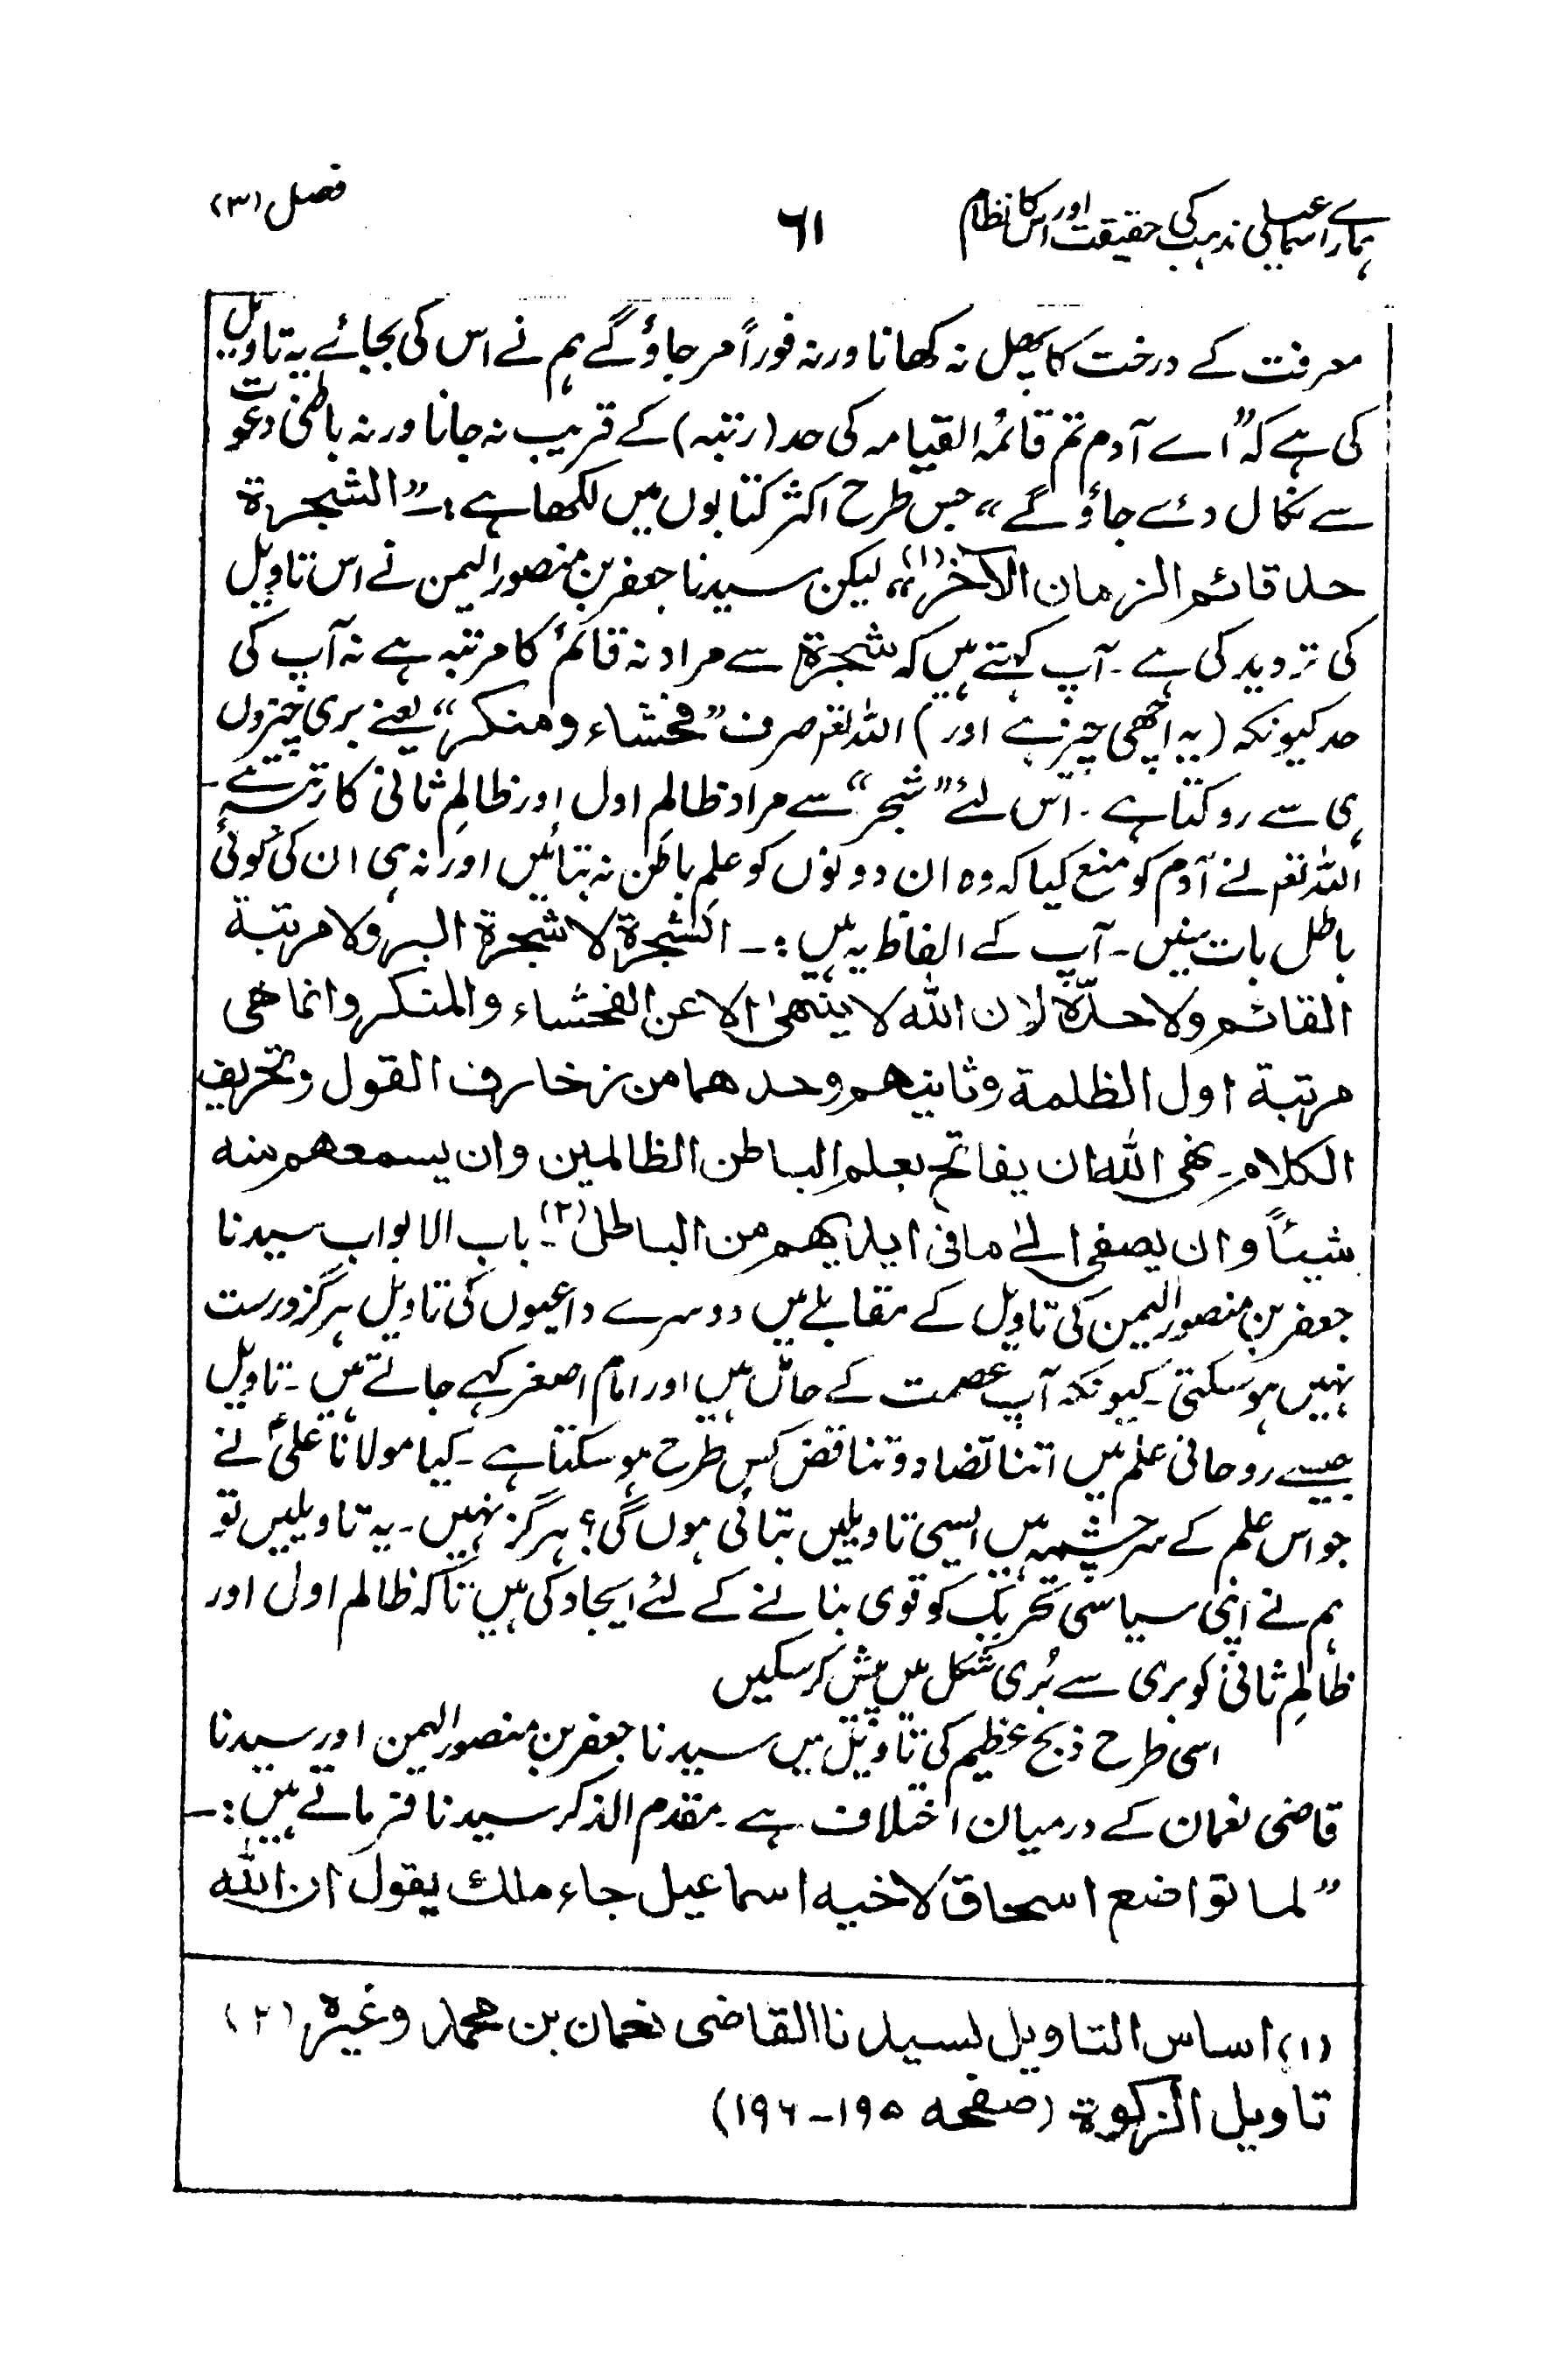 ہمارے اسماعیلی مذہب کی حقیقت اور اس کا نظام
٦١
فصل (۳)
معرفت کے درخت کا پھل نہ کھانا ورنہ فوراً مر جاؤ گے ہم نے اس کی بجائے یہ تاویل
کی ہے کہ ”اے آدم تم قائم القیامہ کی حد (رتبہ) کے قریب نہ جانا ورنہ باطنی دعوت
سے نکال دئے جاؤ گے“ جس طرح اکثر کتابوں میں لکھا ہے :۔ ”الشجرة
حد قائم الزمان الآخر“ (۱) لیکن سیدنا جعفر بن منصور الیمن نے اس تاویل
کی تردید کی ہے ۔ آپ کہتے ہیں کہ شجرة سے مراد نہ قائم کا مرتبہ ہے نہ آپ کی
حد کیونکہ (یہ اچھی چیز ہے اور) اللہ تعم صرف ”فحشاء و منکر“ یعنے بری چیزوں
ہی سے روکتا ہے ۔ اس لئے ”شجر“ سے مراد ظالم اول اور ظالمِ ثانی کا رتبہ ہے ۔
اللہ تعم نے آدم کو منع کیا کہ وہ ان دونوں کو علمِ باطن نہ بتائیں اور نہ ہی ان کی کوئی
باطل بات سنیں ۔ آپ کے الفاظ یہ ہیں :۔ الشجرة لا شجرة البر ولا مرتبة
القائم ولا حدّہ لان اللہ لا ینہیٰ الا عن الفحشاء والمنکر وانما ھی
مرتبة اول الظلمة وثانیھم وحدھما من زخارف القول وتحریف
الکلام ۔ نھی اللہ ان یفاتح بعلم الباطن الظالمین وان یسمعھم منہ
شیئاً و ان یصغی الیٰ ما فی ایدیھم من الباطل (۲) ۔ باب الابواب سیدنا
جعفر بن منصور الیمن کی تاویل کے مقابلے میں دوسرے داعیوں کی تاویل ہرگز درست
نہیں ہو سکتی ۔ کیونکہ آپ عصمت کے حامل ہیں اور امام اصغر کہے جاتے ہیں ۔ تاویل
جیسے روحانی علم میں اتنا تضاد و تناقض کس طرح ہو سکتا ہے ۔ کیا مولانا علیؑ نے
جو اس علم کے سرچشمہ ہیں ایسی تاویلیں بتائی ہوں گی؟ ہرگز نہیں ۔ یہ تاویلیں تو
ہم نے اپنی سیاسی تحریک کو قوی بنانے کے لئے ایجاد کی ہیں تاکہ ظالم اول اور
ظالمِ ثانی کو بری سے بُری شکل میں پیش کر سکیں
اسی طرح ذبح عظیم کی تاویل میں سیدنا جعفر بن منصور الیمن اور سیدنا
قاضی نعمان کے درمیان اختلاف ہے ۔ مقدم الذکر سیدنا فرماتے ہیں :۔
”لما تواضع اسحاق لاخیہ اسماعیل جاء ملک یقول ان اللہ
(۱) اساس التاویل لسیدنا القاضی نعمان بن محمد وغیرہ (۲)
تاویل الزکوة (صفحہ ۱۹۵ ۔ ۱۹۶)